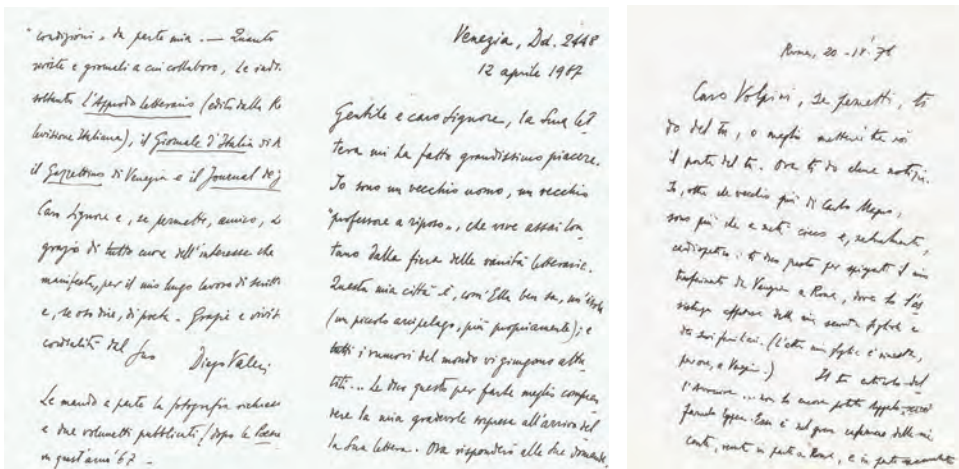 "condizioni, da parte mia. — Quanto
riviste e giornali a cui collaboro, Le indi-
soltanto L'Approdo letterario (edito dalla Ra
levisione Italiana), il Giornale d'Italia di R
il Gazzettino di Venezia e il Journal de g
Caro Signore e, se permette, amico, La
grazio di tutto cuore dell'interesse che
manifesta, per il mio lungo lavoro di scritt
e, se oso dire, di poeta. Grazie e vivis
cordialità del Suo Diego Valeri
Le mando a parte la fotografia richies
e due volumetti pubblicati (dopo le Poesie
in quest'anno '67.
Venezia, Dd. 2448
12 aprile 1967
Gentile e caro Signore, la Sua let-
tera mi ha fatto grandissimo piacere.
Io sono un vecchio uomo, un vecchio
"professore a riposo", che vive assai lon-
tano dalla fiera delle vanità letterarie.
Questa mia città è, com'Ella ben sa, un'isola
(un piccolo arcipelago, più propriamente); e
tutti i rumori del mondo vi giungono attu-
titi... Le dico questo per farle meglio compren
dere la mia gradevole sorpresa all'arrivo del
la Sua lettera. Ora risponderò alle Sue domande
Roma, 20
Caro Volpini, se permetti, ti
do del tu, o meglio
il ponte del tu. Ora ti do alcune notizie.
Io, oltre che vecchio più di Carlo Magno,
sono più che a metà cieco e,
cardiopatico: ti dico questo per spiegarti il mio
da Venezia a Roma, dove ho l'as
sistenza della mia seconda figlia e
dei suoi familiari. (L'altra mia figlia è maestra,
a Venezia.) Il tu
l'Annuario ... non ho ancora potuto
in parte a Roma, e in parte